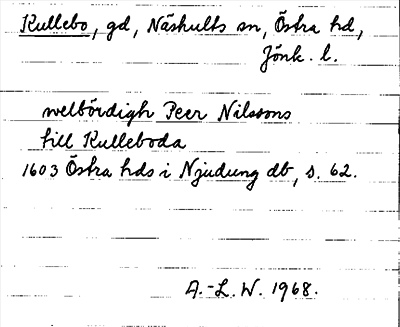 Kullebo, gd, Näshults sn, Östra hd,
Jönk. l.
welbördigh Peer Nilssons
till Kulleboda
1603 Östra hds i Njudung db, s. 62.
A.-L. W. 1968.